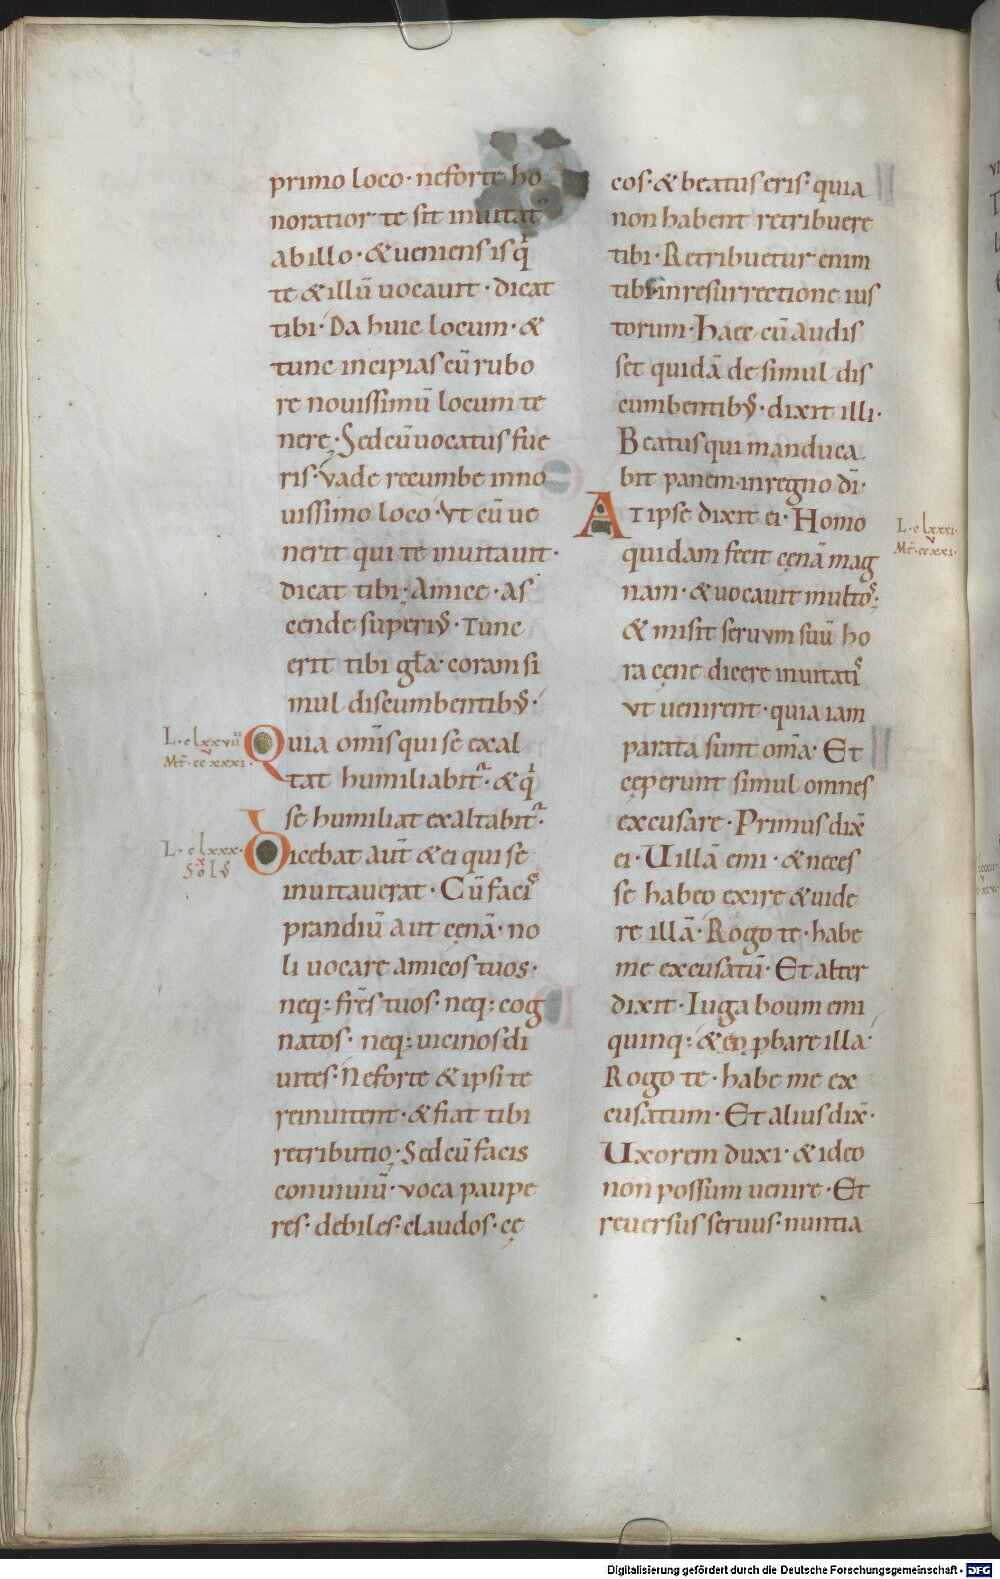 primo loco· neforte ho
noratior te sit inuitat᷒
ab illo· & ueniens is qͥ
te & illū uocauit· dicat
tibi· Da huic locum· &
tunc incipias cū rubo
re nouissimū locum te
nere; Sed cū uocatus fue
ris· vade recumbe inno
uissimo loco· vt cū ue
nerit qui te inuitauit·
dicat tibi; Amice· as
cende superiꝰ· Tunc
erit tibi gl̄a· coram si
mul discumbentibꝰ·
L· clxxviiii
Mt̄· ccxxxi·
Quia om̄is qui se exal
tat humiliabit᷒· & qͥ
se humiliat exaltabit᷒·
L· clxxx·
x
Solꝰ
Dicebat aut̄ & ei qui se
inuitauerat· Cū facis
prandiū aut cęnā· no
li uocare amicos tuos·
neq; fr̄es tuos· neq; cog
natos· neq; uicinos di
uites· Neforte & ipsi te
reinuitent· & fiat tibi
retributio; Sed cū facis
conuiuiū· voca paupe
res· debiles· claudos· cę
cos· & beatus eris· quia
non habent retribuere
tibi· Retribuetur enim
tibi in resurrectione ius
torum· Haec cū audis
set quidā de simul dis
cumbentibꝰ· dixit illi·
Beatus qui manduca
bit panem· in regno dī·
At ipse dixit ei· Homo
L· clxxxi·
v
Mt̄· ccxxi·
quidam fecit cęnā mag
nam· & uocauit multos;
& misit seruvm suū ho
ra cęne dicere inuitatis
vt uenirent· quia iam
parata sunt om̄a· Et
cęperunt simul omnes
excusare· Primus dix̄
ei· Uillā emi· & neces
se habeo exire & uide
re illā· Rogo te· habe
me excusatū· Et alter
dixit· Iuga boum emi
quinq; & eo ꝓbare illa·
Rogo te· habe me ex
cusatum· Et alius dix̄·
Uxorem duxi· & ideo
non possum uenire· Et
reuersus seruus· nuntia
Digitalisierung gefördert durch die Deutsche Forschungsgemeinschaft - DFG